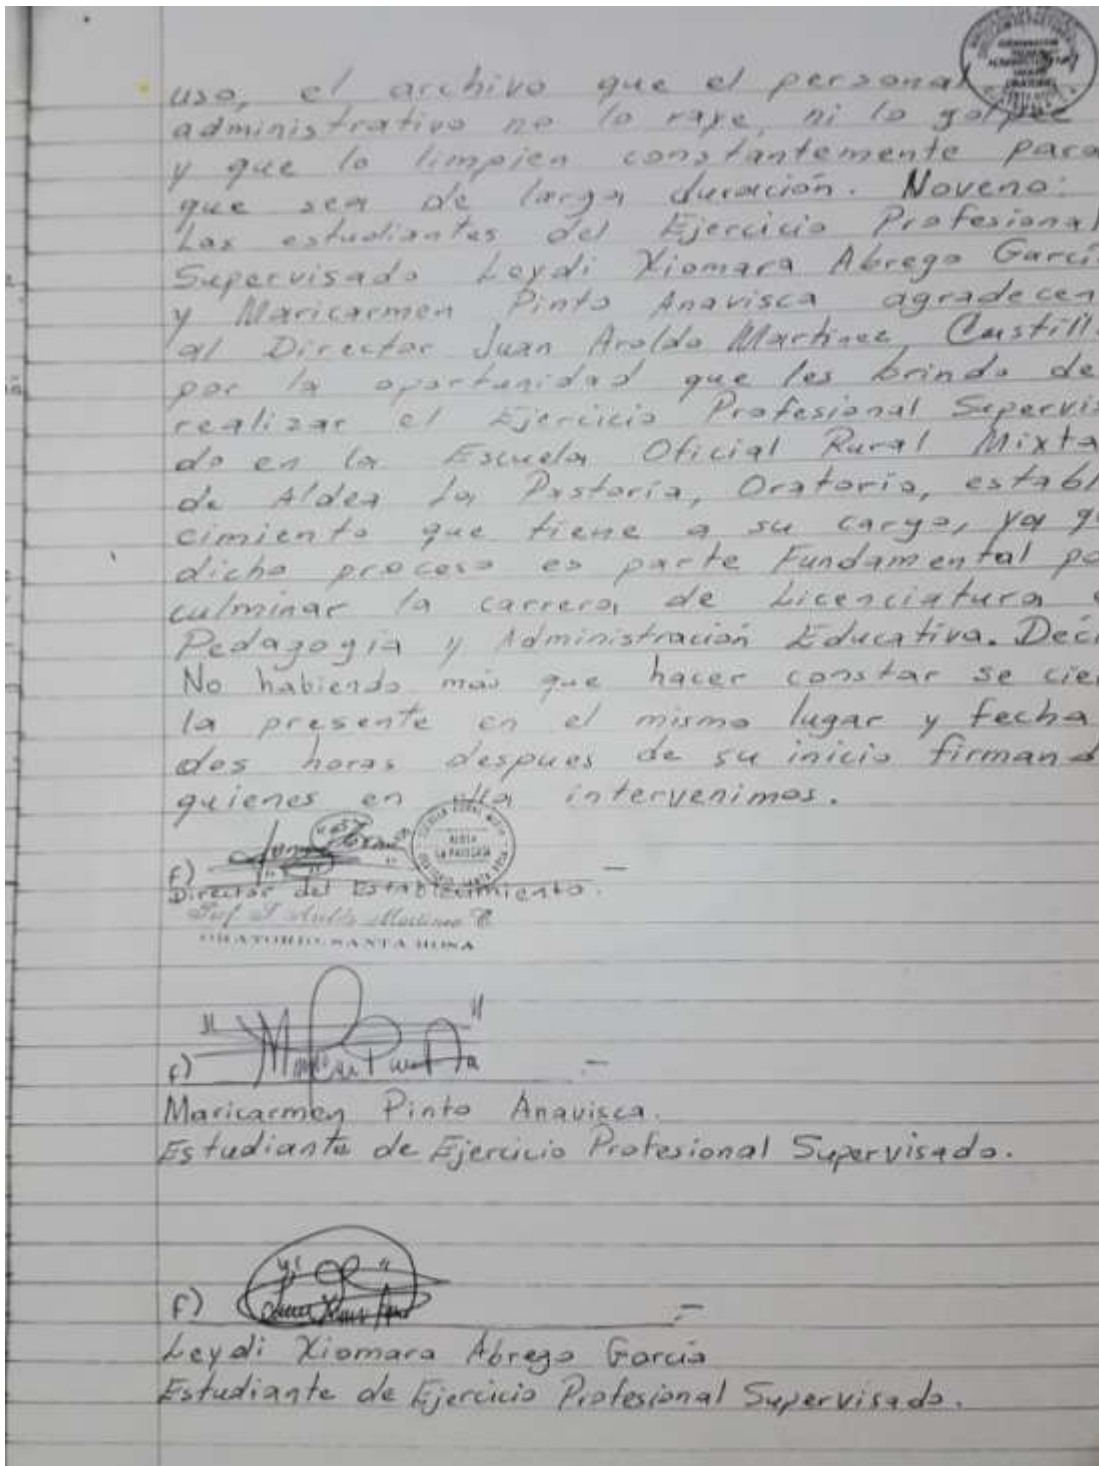 uso, el archivo que el personal
administrativo no lo raye, ni lo golpee
y que lo limpien constantemente para
que sea de larga duración. Noveno:
Las estudiantes del Ejercicio Profesional
Supervisado Leydi Xiomara Abrego Garcí
y Maricarmen Pinto Anavisca agradecen
al Director Juan Aroldo Martinez Castill
por la oportunidad que les brindo de
realizar el Ejercicio Profesional Supervis
do en la Escuela Oficial Rural Mixta
de Aldea La Pastoría, Oratorio, establ
cimiento que tiene a su cargo, ya q
dicho proceso es parte Fundamental pa
culminar la carrera de Licenciatura e
Pedagogía y Administración Educativa. Deci
No habiendo más que hacer constar se cie
la presente en el mismo lugar y fecha
dos horas despues de su inicio firmand
quienes en ella intervenimos.
ALDEA
LA PASTORIA
f)
Director del Establecimiento.-
Prof. J. Aroldo Martinez C.
ORATORIO, SANTA ROSA
f) -
Maricarmen Pinto Anavisca.
Estudiante de Ejercicio Profesional Supervisado.
f) .-
Leydi Xiomara Abrego García
Estudiante de Ejercicio Profesional Supervisado.